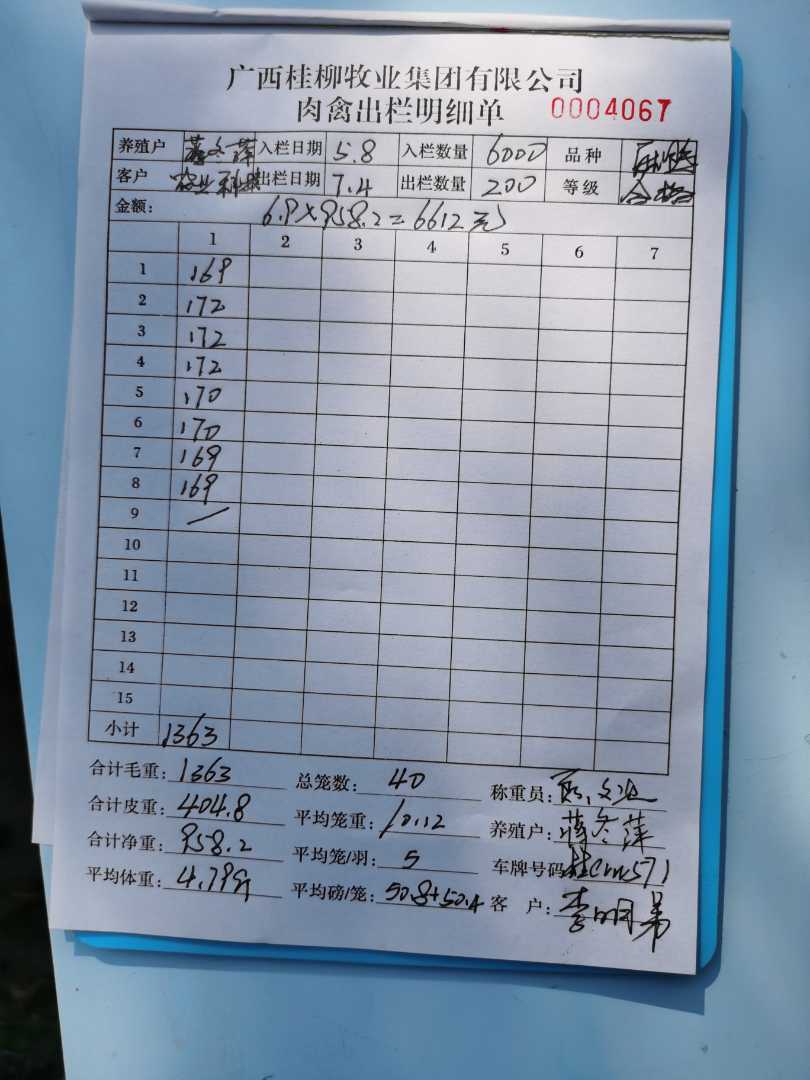 广西桂柳牧业集团有限公司
肉禽出栏明细单 0004067
养殖户 蒋冬萍 入栏日期 5.8 入栏数量 6000 品种
客户 农业科技 出栏日期 7.4 出栏数量 200 等级 合格
金额: 6.9×958.2=6612元
1 2 3 4 5 6 7
1 169
2 172
3 172
4 172
5 170
6 170
7 169
8 169
9 /
10
11
12
13
14
15
小计 1363
合计毛重: 1363 总笼数: 40 称重员:
合计皮重: 404.8 平均笼重: 10.12 养殖户: 蒋冬萍
合计净重: 958.2 平均笼/羽: 5 车牌号码
平均体重: 4.79 平均磅/笼: 50.8+50.4 客 户: 李明弟